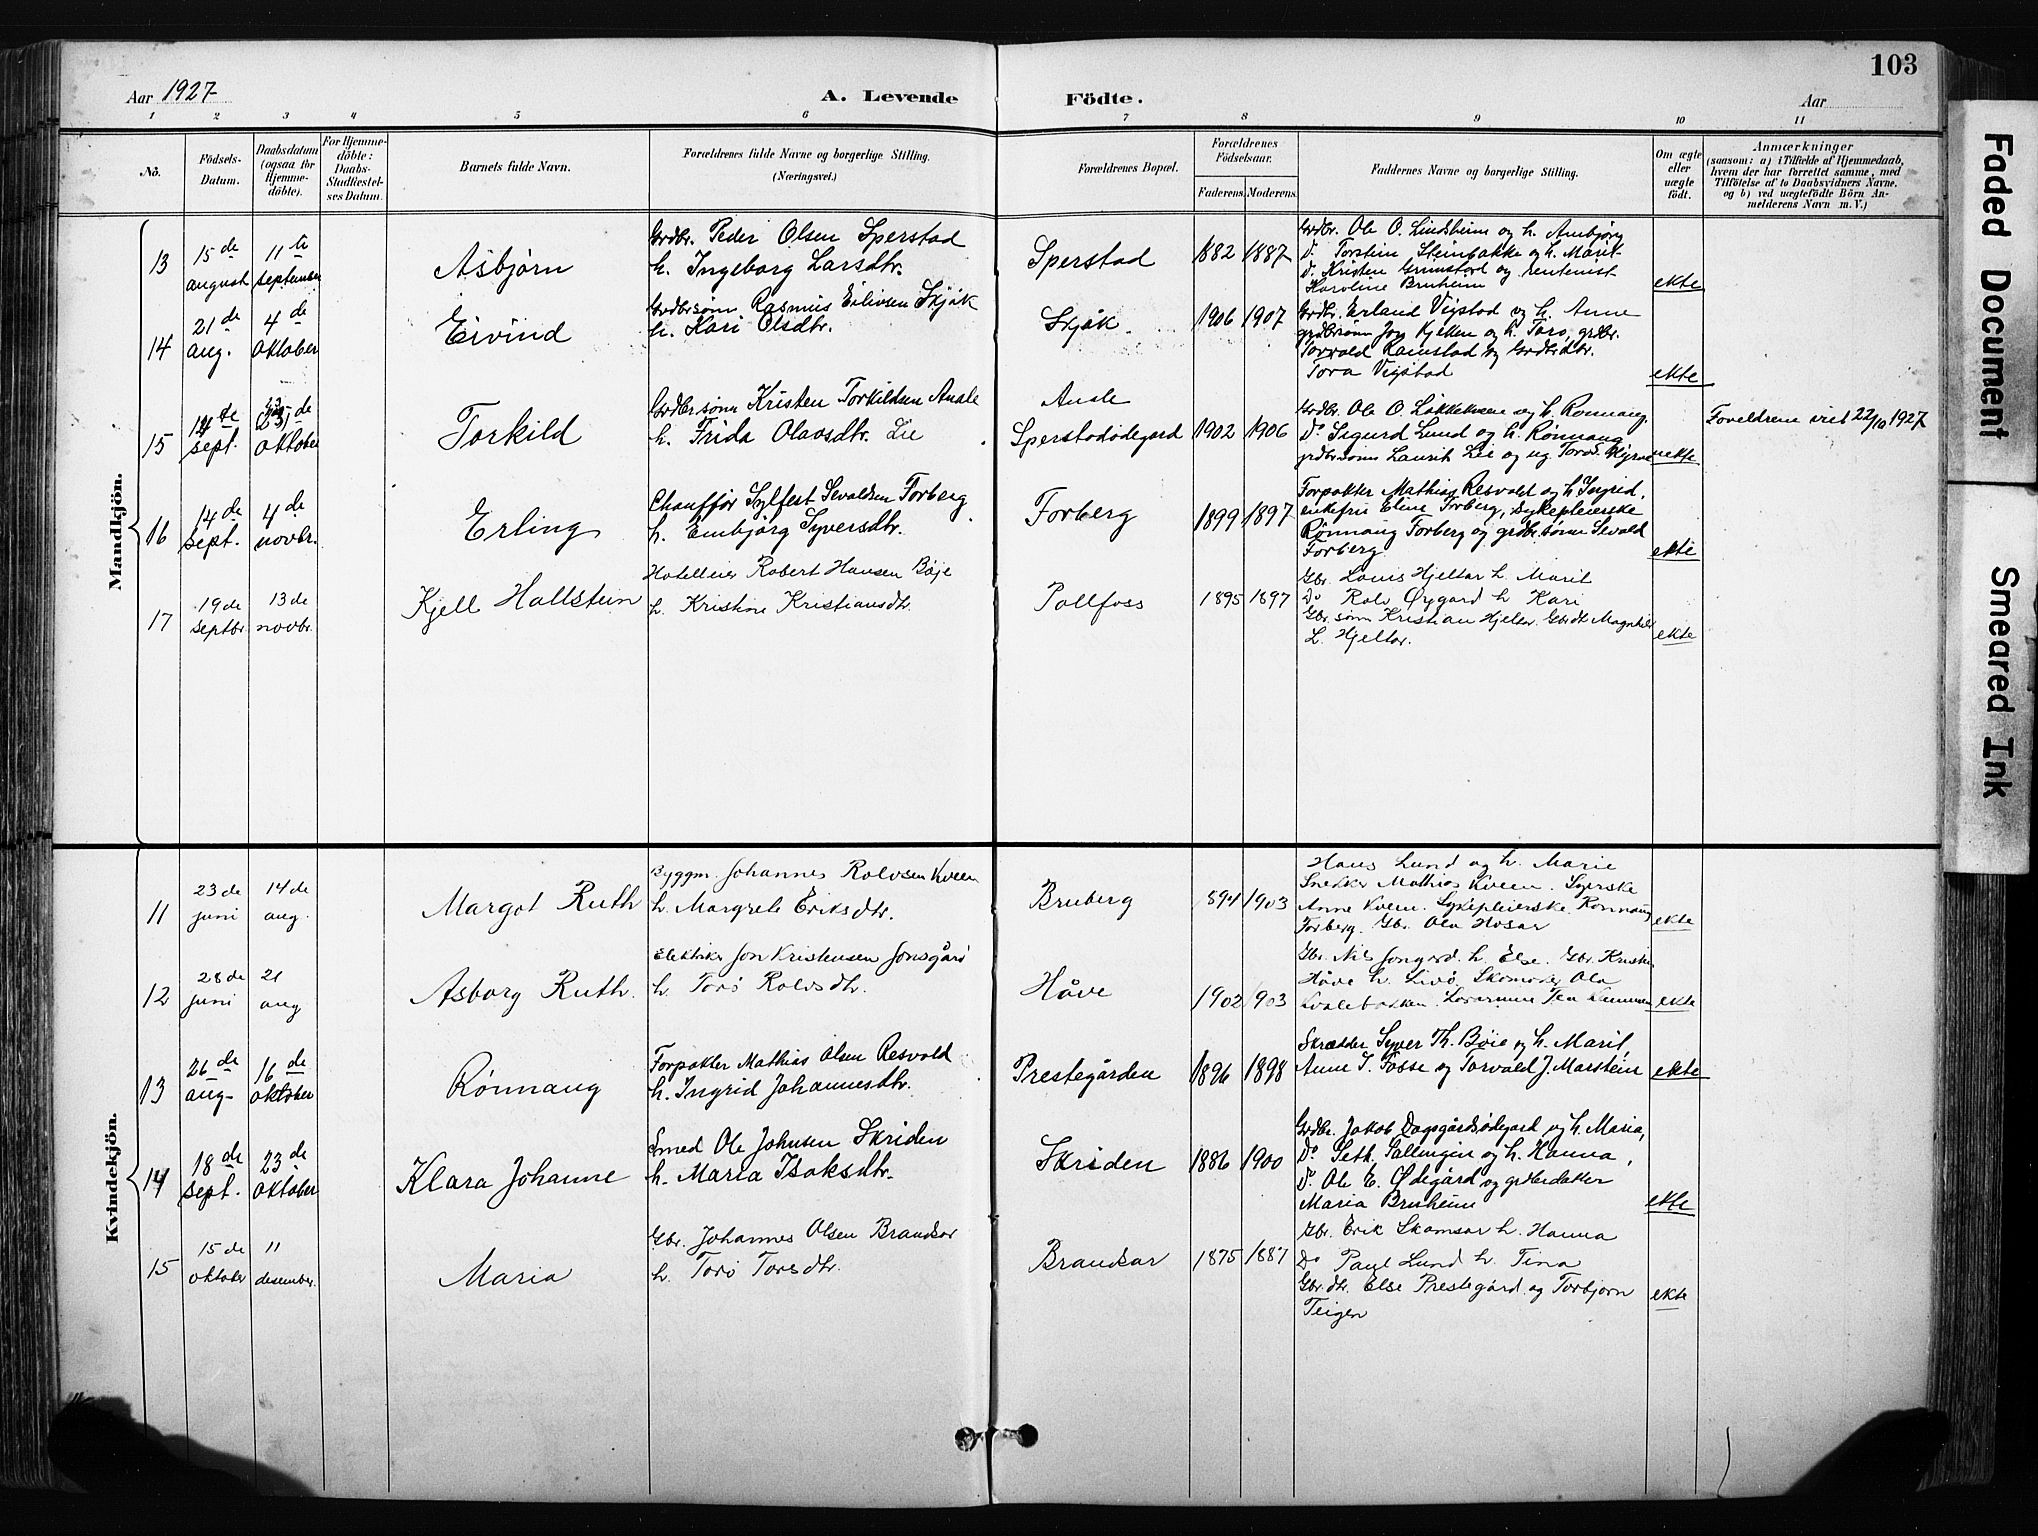 103
Aar 1927
A. Levende Födte.
Aar
1 2 3 4 5 6 7 8 9 10 11
No.
Födsels-Datum.
Daabsdatum (ogsaa for Hjemme-döbte).
For Hjemme-döbte: Daabs-Stadfæstel-ses Datum.
Barnets fulde Navn.
Forældrenes fulde Navne og borgerlige Stilling.
(Næringsvei.)
Forældrenes Bopæl.
Forældrenes Födselsaar.
Faderens. Moderens.
Faddernes Navne og borgerlige Stilling.
Om ægte eller uægte födt.
Anmærkninger
(saasom: a) i Tilfælde af Hjemmedaab,
hvem der har forrettet samme, med
Tilföielse af to Daabsvidners Navne.
og b) ved uægtefödte Börn An-
melderens Navn m. V.)
Mandkjön.
13
15 de august
11 te september
Asbjørn
Grdbr. Peder Olsen Sperstad
h. Ingeborg Larsdtr.
Sperstad
1882 1887
Grdbr. Ole O. Lindsheim og h. Ambjørg
Do Torstein Steinbakke og h. Marit
Do Kristen Grimstad og rentenist
Karoline Bruheim
ekte
14
21 de aug.
4 de oktober
Eivind
Grdbrsøn Rasmus Eilivsen Skjåk
h. Kari Olsdtr.
Skjåk.
1906 1907
Grdbr. Erland Vigstad og h. Anne
grdbrsønn Jog Kjekken og h. Toro, grdbr.
Torvald Ramstad og Grdbrdtr.
Tora Vigstad
ekte
15
14 de sept.
23 de oktober
Torkild
Grdbrsønn Kristen Torkildsen Aasle
h. Frida Olavsdtr. Lie
Aasle
Sperstadødegard
1902 1906
Grdbr. Ole O. Løkkeksen og h. Rønnaug.
Do Sigurd Lund og h. Rønnaug
grdbrsønn Laurits Lie og ug. Toro
uekte
Foreldrene viet 22/10 1927
16
14 de sept.
4 de novbr.
Erling
Chauffør Sylfest Sevaldsen Forberg
h. Embjørg Syversdtr.
Forberg
1899 1897
Forpakter Mathias Resvold og h. Ingrid,
enkefru Eline Forberg, sykepleierske
Rønnaug Forberg og grdbr.sønn Sevald
Forberg
ekte
17
19 de septbr.
13 de novbr.
Kjell Hallstein
Hotelleier Robert Hansen Bøje
h. Kristine Kristiansdtr.
Pollfoss
1895 1897
Gbr. Louis Hjeltar h. Marit
Do Rolv Øygard h Kari
Gbr. sønn Kristian Hjeltar. Gbrdtr Magnhild
L. Hjeltar.
ekte
Kvindekjön.
11
23 de juni
14 de aug.
Margot Ruth
Byggm. Johannes Rolvsen Kveen
h. Margrete Eriksdtr.
Bruberg
894 1903
Hans Lund og h. Marie
Snekker Mathias Kveen. Syerske
Anne Kveen. Sykepleierske Rønnaug
Forberg. Gbr. Ola Hosar
ekte
12
28 de juni
21 aug
Asborg Ruth.
Elektriker Jon Kristensen Jonsgård
h. Torø Rolvsdtr.
Håve
1902 1903
Gbr. Nils Jongard. h. Else. Gbr. Kristen
Håve h. Livø, Skomaker Ola
Kvalebakken. Lærerinne Tea
ekte
13
26 de aug-
16 de oktober
Rønnaug
Forpakter Mathias Olsen Resvold
h. Ingrid Johannesdtr.
Prestegården
1896 1898
Skrædder Syver Th. Bøie og h. Marit
Anne I. Fosse og Torvald J. Marstein
ekte
14
18 de sept.
23 de oktober
Klara Johanne
Smed Ole Johnsen Skriden
h. Maria Isaksdtr.
Skriden
1886 1900
Grdbr. Jakob Dagsgårdsødegard og h. Maria,
Do Seth. Gallingin og h. Hanna,
Do Ole E. Ødegård og grdbrdatter
Maria Bruheim
ekte
15
15 de oktober
11 desember.
Maria
Gbr. Johannes Olsen Brandsar
h. Torø Torsdtr.
Brandsar
1875 1887
Gbr. Erik Skamsar h. Hanna
Do Paul Lund h. Tina
Gbr.dtr. Else Prestegård og Torbjørn
Teigen
ekte
Faded Document
Smeared Ink